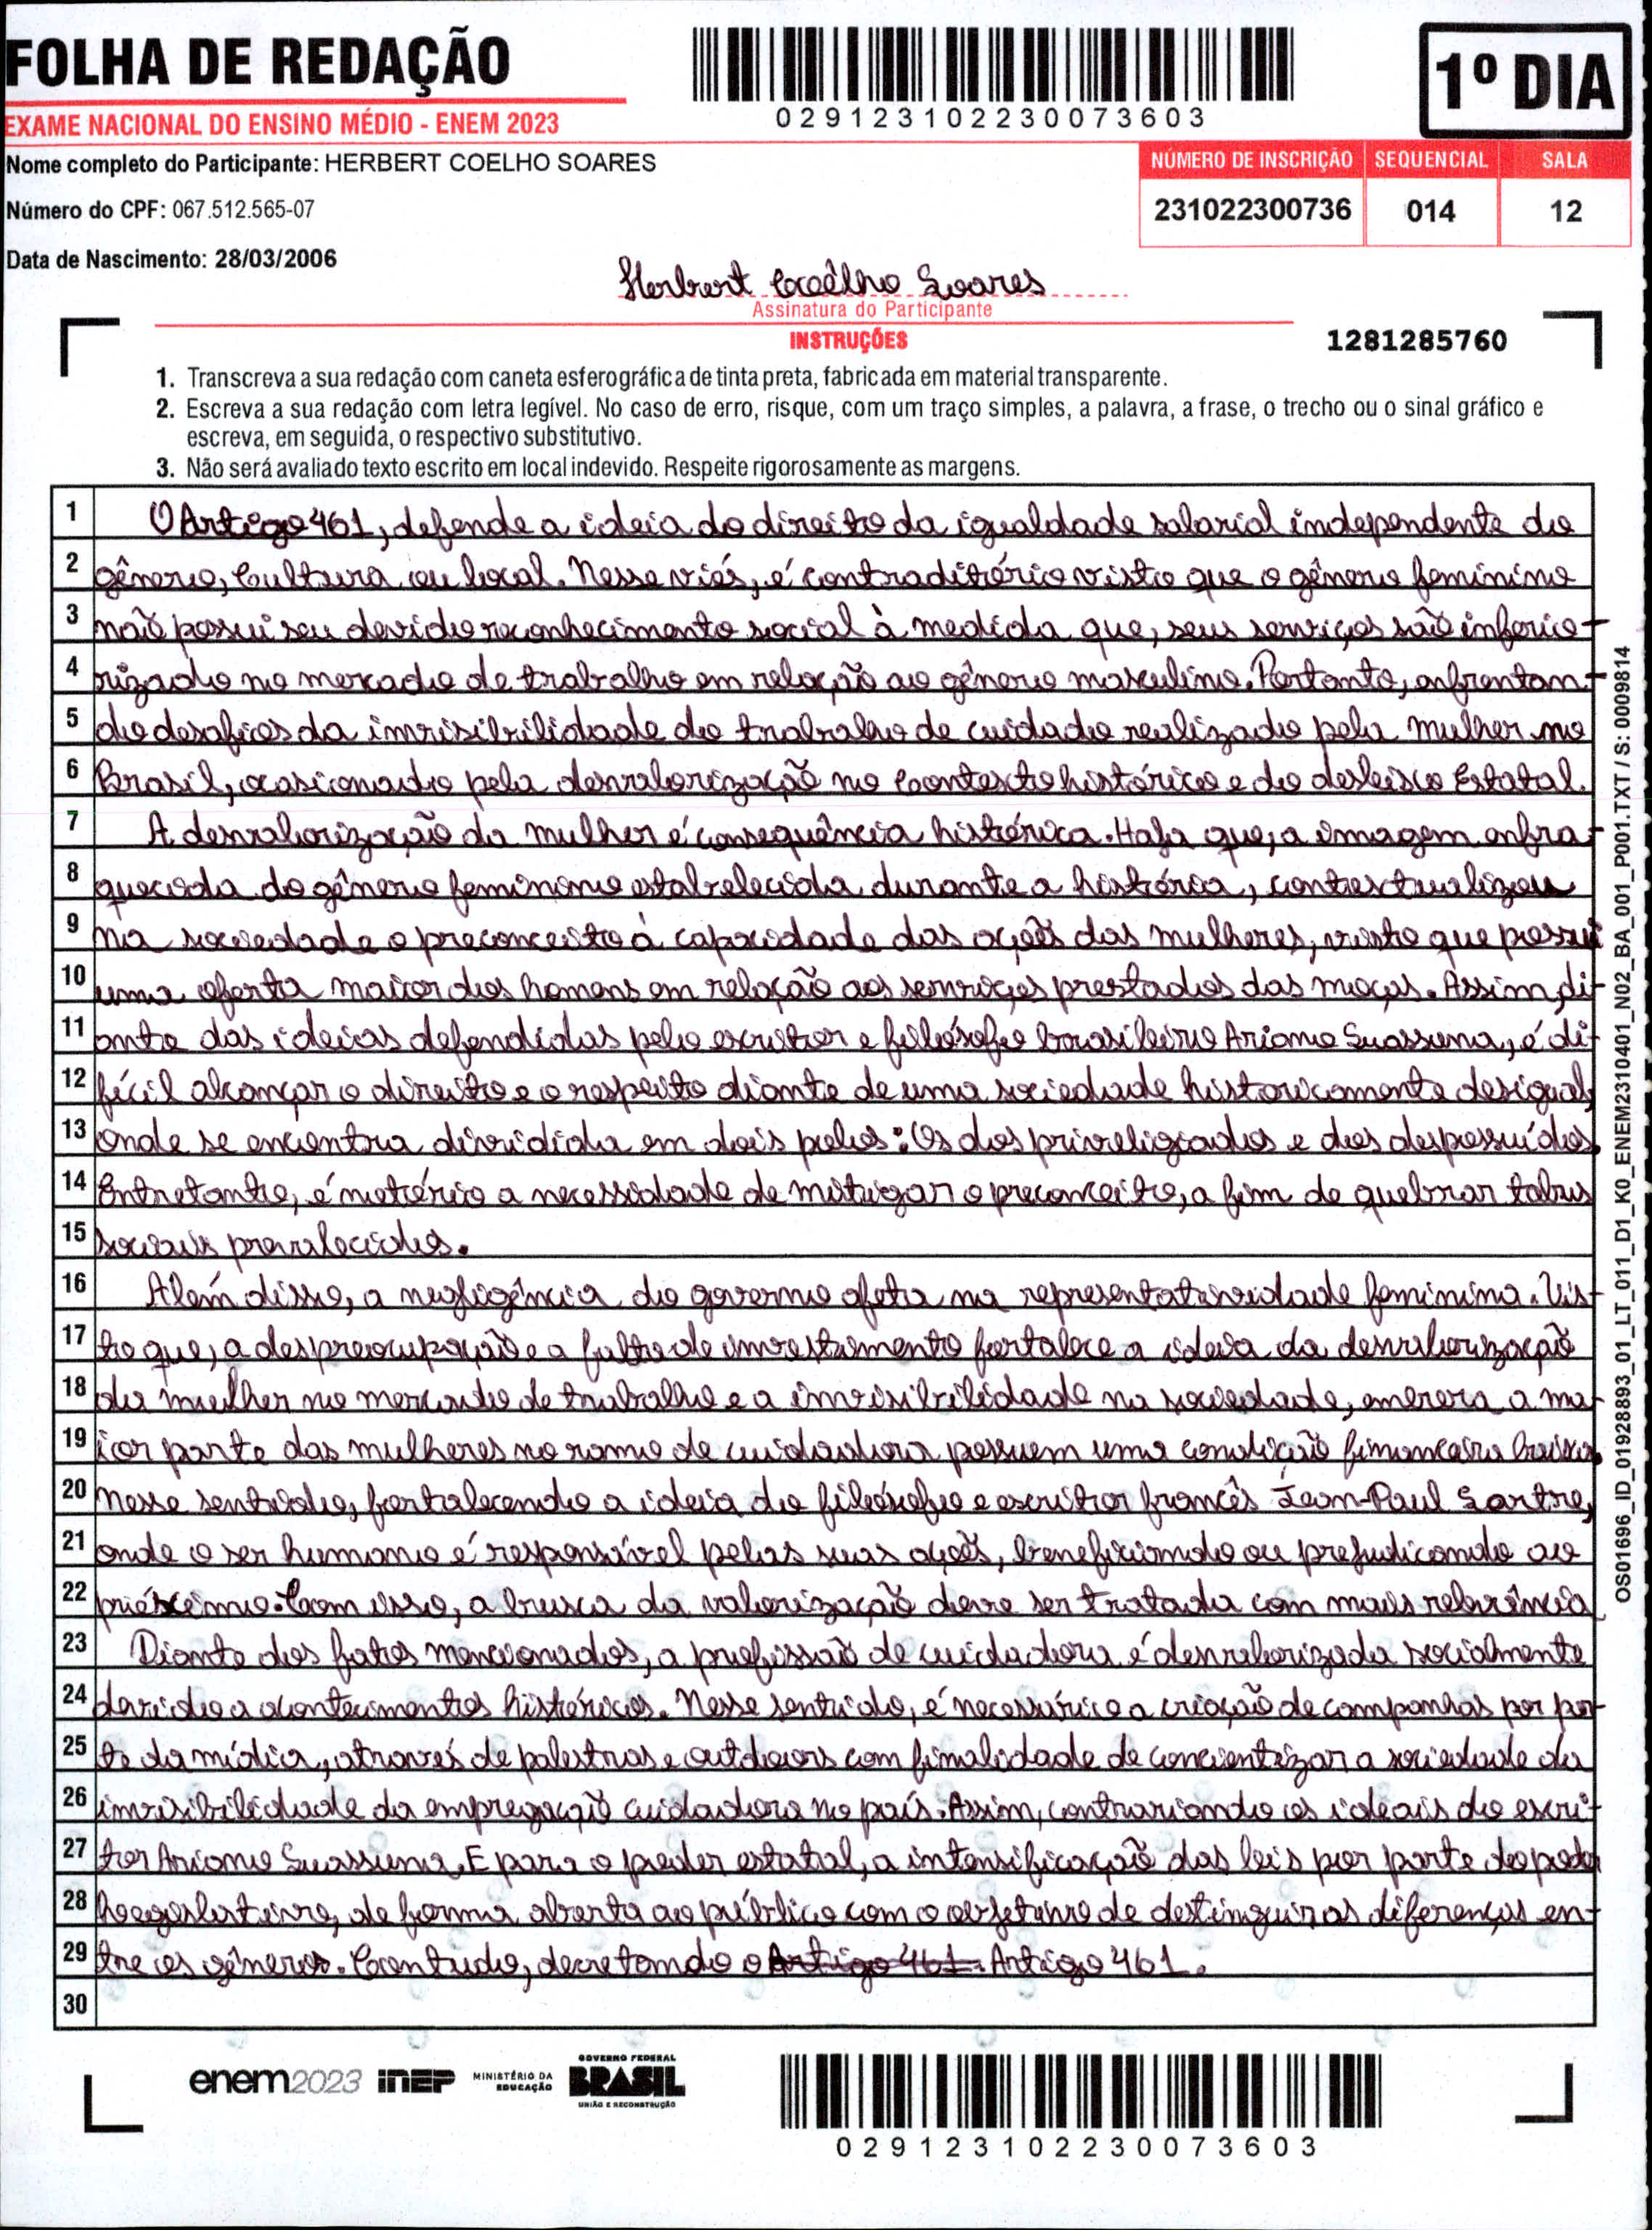 FOLHA DE REDAÇÃO
EXAME NACIONAL DO ENSINO MÉDIO - ENEM 2023
029123102230073603
1º DIA
Nome completo do Participante: HERBERT COELHO SOARES
Número do CPF: 067.512.565-07
Data de Nascimento: 28/03/2006
NÚMERO DE INSCRIÇÃO SEQUENCIAL SALA
231022300736 014 12
Herbert Coelho Soares
Assinatura do Participante
INSTRUÇÕES
1281285760
1. Transcreva a sua redação com caneta esferográfica de tinta preta, fabricada em material transparente.
2. Escreva a sua redação com letra legível. No caso de erro, risque, com um traço simples, a palavra, a frase, o trecho ou o sinal gráfico e
escreva, em seguida, o respectivo substitutivo.
3. Não será avaliado texto escrito em local indevido. Respeite rigorosamente as margens.
1 O Artigo 461, defende a ideia do direito da igualdade salarial independente do
2 gênero, Cultura ou local. Nesse viés, é contraditório visto que o gênero feminino
3 não possui seu devido reconhecimento social à medida que, seus serviços são inferio-
4 rizado no mercado de trabalho em relação ao gênero masculino. Portanto, enfrentan-
5 do desafios da invisibilidade do trabalho de cuidado realizado pela mulher no
6 Brasil, ocasionado pela desvalorização no Contexto histórico e do desleixo Estatal.
7 A desvalorização da mulher é consequência histórica. Haja que, a imagem enfra-
8 quecida do gênero feminino estabelecida durante a história, contextualizou
9 na sociedade o preconceito à capacidade das ações das mulheres, visto que possui
10 uma oferta maior dos homens em relação aos serviços prestados das moças. Assim, di-
11 ante das ideias defendidas pelo escritor e filósofo brasileiro Ariano Suassuna, é di-
12 fícil alcançar o direito e o respeito diante de uma sociedade historicamente desigual,
13 onde se encontra dividida em dois polos: Os dos priveligiados e dos despossuídos.
14 Entretanto, é notório a necessidade de mitigar o preconceito, a fim de quebrar tabus
15 sociais prevalecidos.
16 Além disso, a negligência do governo afeta na representatividade feminina. Vis-
17 to que, a despreocupação e a falta de investimento fortalece a ideia da desvalorização
18 da mulher no mercado de trabalho e a invisibilidade na sociedade, embora a ma-
19 ior parte das mulheres no ramo de cuidadora possuem uma condição financeira baixa,
20 nesse sentido, fortalecendo a ideia do filósofo e escritor francês Jean-Paul Sartre,
21 onde o ser humano é responsável pelas suas ações, beneficiando ou prejudicando ao
22 próximo. Com isso, a busca da valorização deve ser tratada com mais relevência
23 Diante dos fatos mencionados, a profissão de cuidadora é desvalorizada socialmente
24 devido a acontecimentos históricos. Nesse sentido, é necessário a criação de campanhas por par-
25 te da mídia, através de palestras e outdoors com finalidade de concientizar a sociedade da
26 invisibilidade da empregação cuidadora no país. Assim, contrariando os ideais do escri-
27 tor Ariano Suassuna. E para o poder estatal, a intensificação das leis por parte do poder
28 legislativo, de forma aberta ao público com o objetivo de destinguir as diferenças en-
29 tre os gêneros. Contudo, decretando o Artigo 461. Artigo 461.
30
enem2023 inep MINISTÉRIO DA EDUCAÇÃO GOVERNO FEDERAL BRASIL UNIÃO E RECONSTRUÇÃO
029123102230073603
OS01696_ID_01928893_01_LT_011_D1_K0_ENEM2310401_N02_BA_001_P001.TXT / S: 0009814